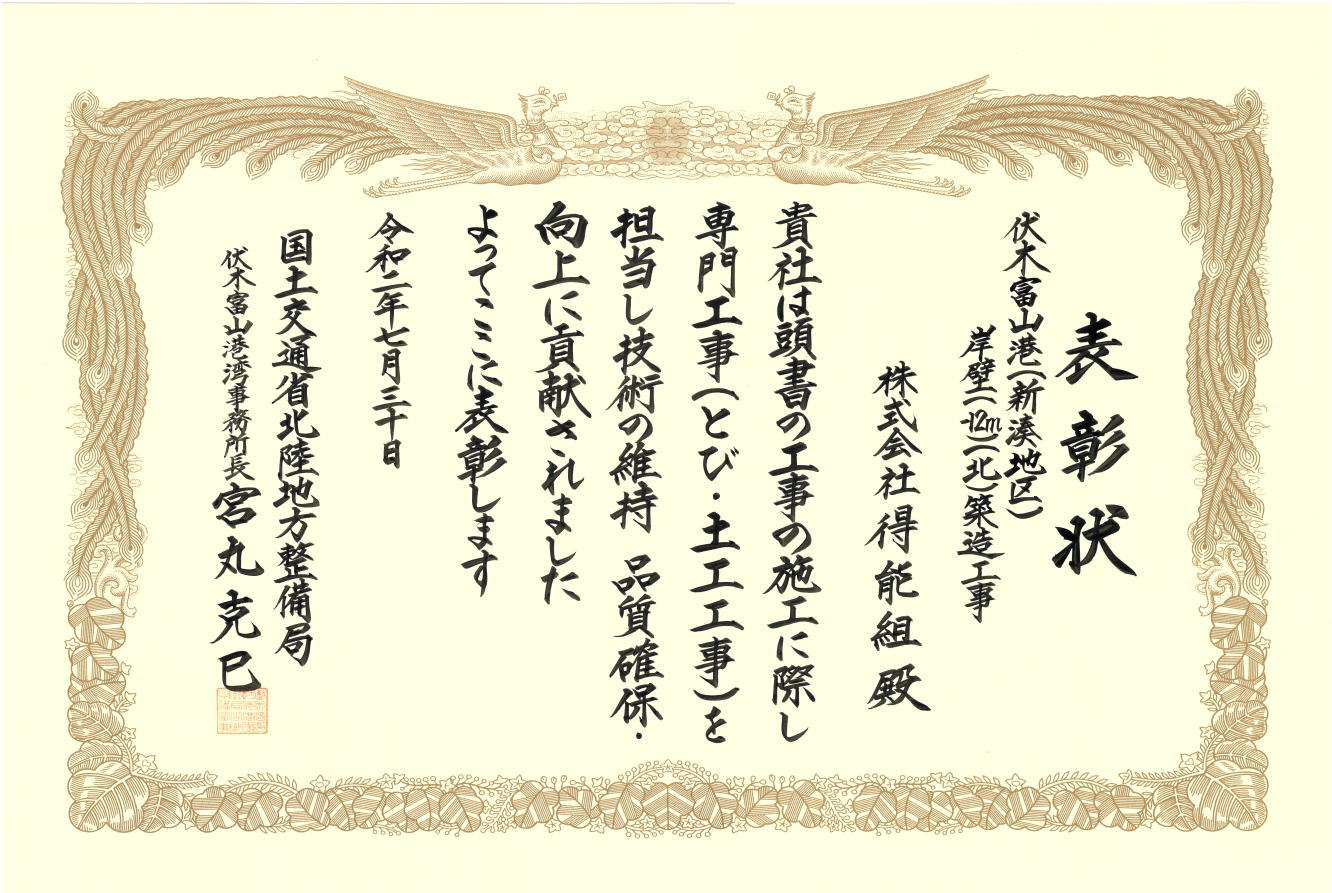 表彰状
伏木富山港(新湊地区)
岸壁(-12m)(北)築造工事
株式会社得能組殿
貴社は頭書の工事の施工に際し
専門工事(とび・土工工事)を
担当し技術の維持 品質確保・
向上に貢献されました
よってここに表彰します
令和二年七月三十日
国土交通省北陸地方整備局
伏木富山港湾事務所長 宮丸克巳